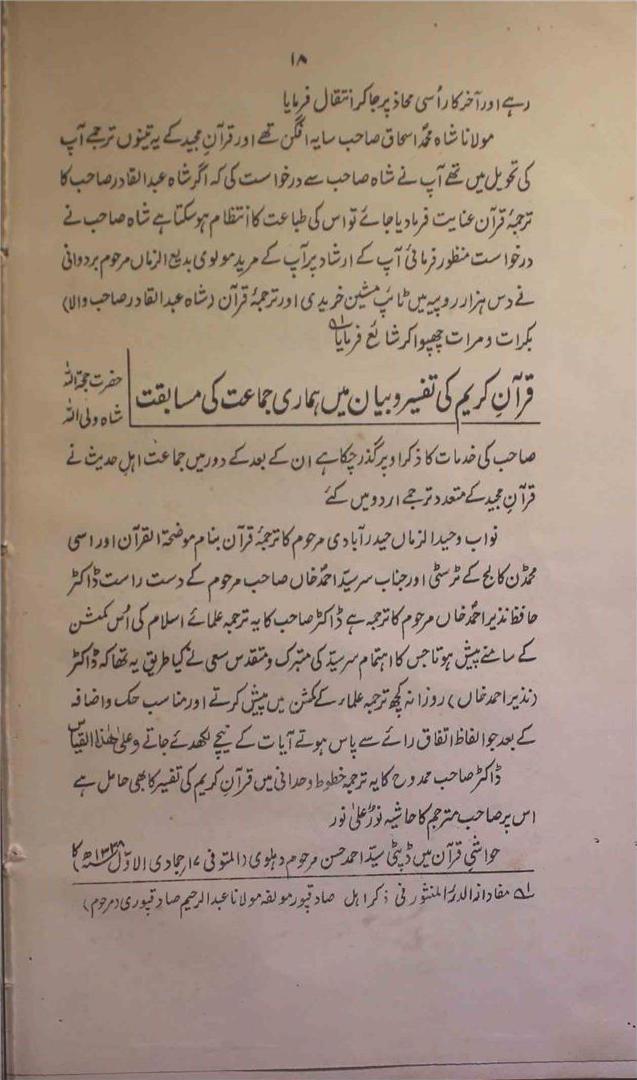 ۱۸
رہے اور آخر کار اُسی محاذ پر جا کر انتقال فرمایا
مولانا شاہ محمدؐ اسحاق صاحب سایہ افگن تھے اور قرآنِ مجید کے یہ تینوں ترجمے آپ
کی تحویل میں تھے آپ نے شاہ صاحب سے درخواست کی کہ اگر شاہ عبدالقادر صاحب کا
ترجمۂ قرآن عنایت فرما دیا جائے تو اس کی طباعت کا انتظام ہو سکتا ہے شاہ صاحب نے
درخواست منظور فرمائی آپ کے ارشاد پر آپ کے مرید مولوی بدیع الزماں مرحوم بردوانی
نے دس ہزار روپیہ میں ٹائپ مشین خریدی اور ترجمۂ قرآن (شاہ عبدالقادر صاحب والا)
بکرات و مرات چھپوا کر شائع فرمایا ۱ھ
قرآنِ کریم کی تفسیر و بیان میں ہماری جماعت کی مسابقت
حضرت حجۃ اللہ
شاہ ولی اللہ
صاحب کی خدمات کا ذکر اوپر گذر چکا ہے ان کے بعد کے دور میں جماعت اہلِ حدیث نے
قرآنِ مجید کے متعدد ترجمے اردو میں کئے
نواب وحید الزماں حیدرآبادی مرحوم کا ترجمۂ قرآن بنام موضحۃ القرآن اور اسی
محمڈن کالج کے ٹرسٹی اور جناب سر سیّد احمدؐ خاں صاحب مرحوم کے دست راست ڈاکٹر
حافظ نذیر احمدؐ خاں مرحوم کا ترجمہ ہے ڈاکٹر صاحب کا یہ ترجمہ علمائے اسلام کی اُس کمشن
کے سامنے پیش ہوتا جس کا اہتمام سر سیّد کی متبرک و متقدس سعی نے کیا طریق یہ تھا کہ ڈاکٹر
(نذیر احمد خاں) روزانہ کچھ ترجمہ علماء کے کمشن میں پیش کرتے اور مناسب حک و اضافہ
کے بعد جو الفاظ اتفاق رائے سے پاس ہوتے آیات کے نیچے لکھدئے جاتے وعلیٰ ھٰذا القیاس
ڈاکٹر صاحب ممدوح کا یہ ترجمہ خطوط وحدانی میں قرآنِ کریم کی تفسیر کا بھی حامل ہے
اس پر صاحب مترجم کا حاشیہ نورٌ علیٰ نور
حواشی قرآن میں ڈپٹی سیّد احمد حسن مرحوم دہلوی (المتوفی ۱۷ جمادی الاوّل ۱۳۳۸ھ) کا
۱ھ مفاد از الدرّ المنثور فی ذکر اہل صادقپور مولفہ مولانا عبدالرحیم صادقپوری (مرحوم)